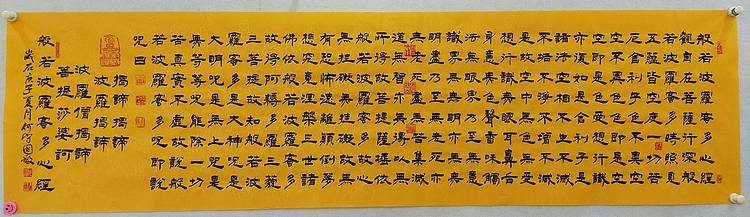 般若波羅蜜多心經
觀自在菩薩行深般
若波羅蜜多時照見
五蘊皆空度一切苦
厄舍利子色不異空
空不異色色即是空
空即是色受想行識
亦復如是舍利子是
諸法空相不生不滅
不垢不淨不增不減
是故空中無色無受
想行識無眼耳鼻舌
身意無色聲香味觸
法無眼界乃至無意
識界無無明亦無無
明盡乃至無老死亦
無老死盡無苦集滅
道無智亦無得以無
所得故菩提薩埵依
般若波羅蜜多故心
無罣礙無罣礙故無
有恐怖遠離顛倒夢
想究竟涅槃三世諸
佛依般若波羅蜜多
故得阿耨多羅三藐
三菩提故知般若波
羅蜜多是大神咒是
大明咒是無上咒是
無等等咒能除一切
苦真實不虛故說般
若波羅蜜多咒即說
咒曰
揭諦揭諦
波羅揭諦
波羅僧揭諦
菩提莎婆訶
般若波羅蜜多心經
歲在庚子夏月何守